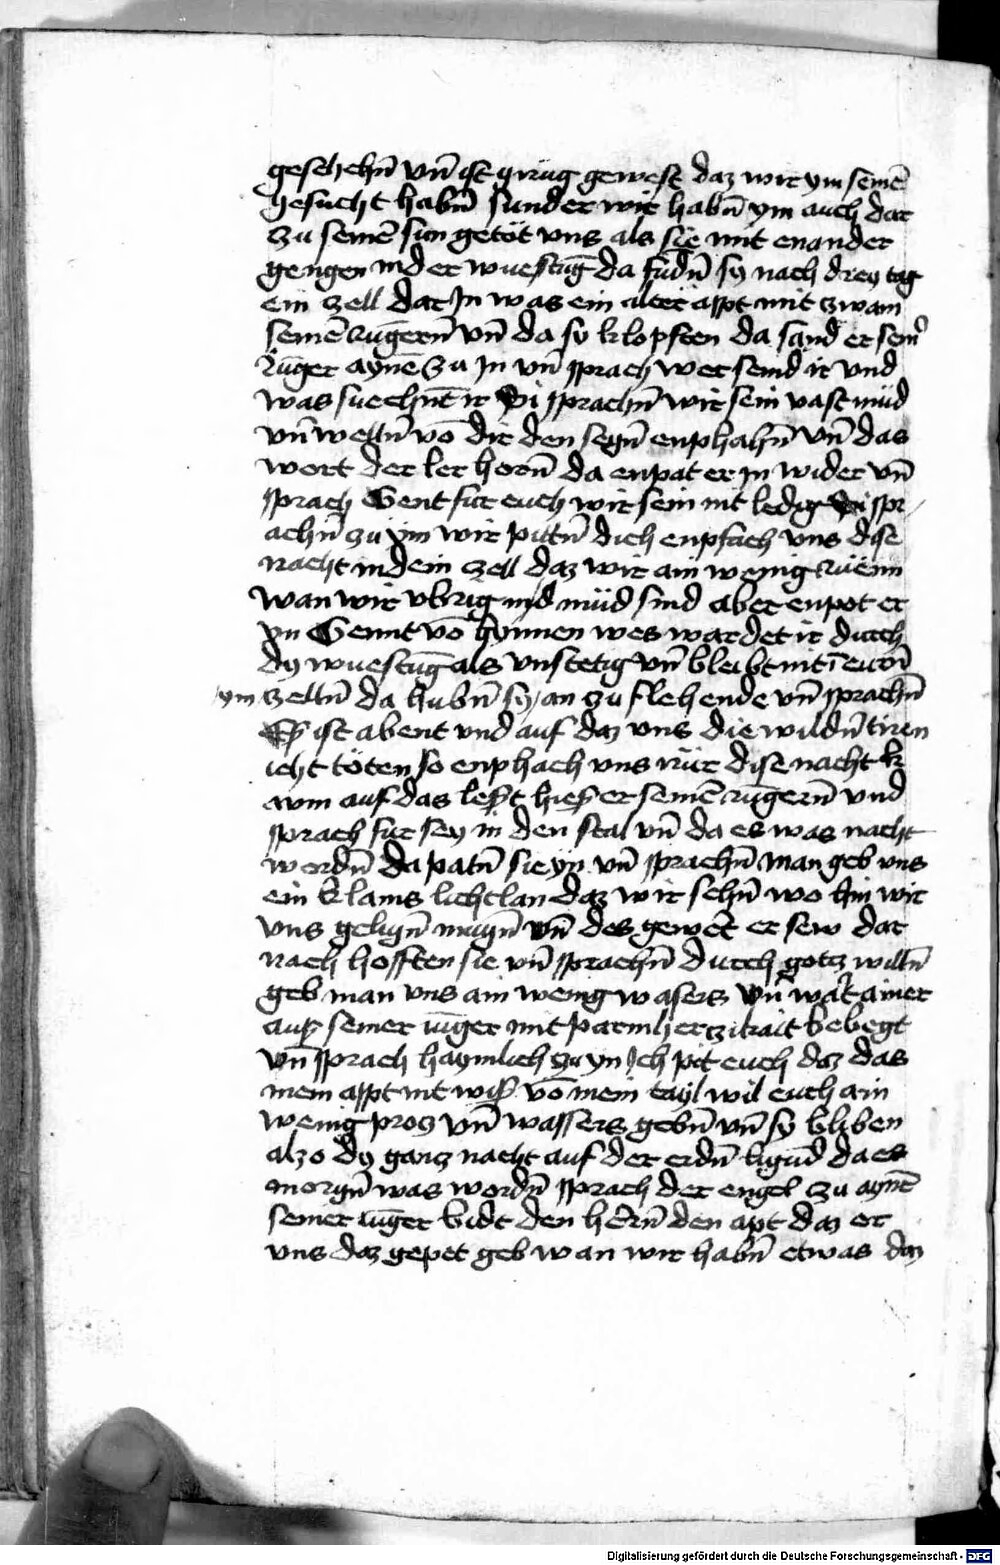 geschehn̄ vn̄ ist gnug gewest daz wir ym seinē
gesucht habn̄ sunder wir habn̄ ym auch dar
zu seinē sun getöt vns als sie mit enander
gengen in der wuestūg da fūdn̄ sy nach drey tag
ein zell dar In was ein alter appt mit zwain
seinē iūgern̄ vn̄ da sy klopften da sand er sein̄
iūger aynē zu In vn̄ sprach wer seind ir vnd
was suechnt ir Di sprachn̄ wir sein vast müd
vn̄ welln̄ vō dir den segn̄ enphahn̄ vn̄ das
wort der ler horn̄ da enpat er In wider vn̄
sprach Gent fur euch wir sein nit ledig Di spr
achn̄ zu ym wir pittn̄ dich enpfach vns dise
nacht in dein zell daz wir ain wenig ruen
wan wir vbrig müd sind aber enpot er
yn Gennt vō hynnen wes wardet ir durch
dy wuestūg als vnstetig vn̄ bleibt nit ī ewrn̄
zelln̄ da hubn̄ sy ym an zu flehende vn̄ sprachn̄
Es ist abent vnd auf daz vns die wildn̄ tiren
icht töten so enphach vns nür dise nacht k
awm auf das lest hies er seinē iūgern̄ vnd
sprach fur sey in den stal vn̄ da es was nacht
wordn̄ da patn̄ sie yn vn̄ sprachn̄ man geb vns
ein klains liecht daz wir sehn̄ wo hin wir
vns gelign̄ mugn̄ vn̄ des gewert er sew dar
nach hofften sie vn̄ sprachn̄ durch gotz willn̄
geb man vns ain wenig wasers vn̄ wart ainer
aus seiner iūger mit parmherzikait bebegt
vn̄ sprach haymlich zu yn Ich pit euch daz das
mein appt nit wiß vō mein tayl wil euch ain
wenig protz vn̄ wassers gebn̄ vn̄ sy bliben
also dy gantz nacht auf der erdn̄ ligūd da es
morgn̄ was wordn̄ sprach der engel zu aynē
seiner iūger bidt den hern̄ den apt daz er
vns daz gepet geb wan wir habn̄ etwas daz
Digitalisierung gefördert durch die Deutsche Forschungsgemeinschaft - DFG